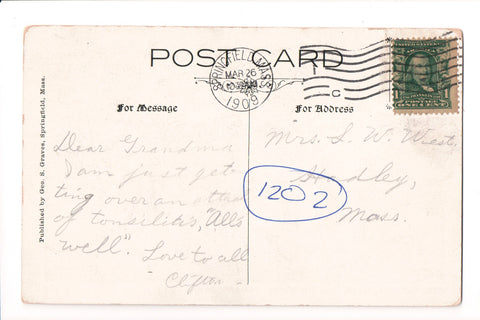 POST CARD
SPRINGFIELD, MASS.
MAR 26
1909
1
C
ONE CENT
For Message
For Address
Published by Geo. S. Graves, Springfield, Mass.
Dear Grandma
I am just get-
ting over an attack
of tonsilites, "All's
well." Love to all
Clifton
Mrs. L. W. West,
Hadley,
Mass.
1202